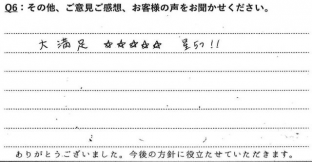 Q6：その他、ご意見ご感想、お客様の声をお聞かせください。
大満足 ☆☆☆☆☆ 星5つ!!
ありがとうございました。今後の方針に役立たせていただきます。